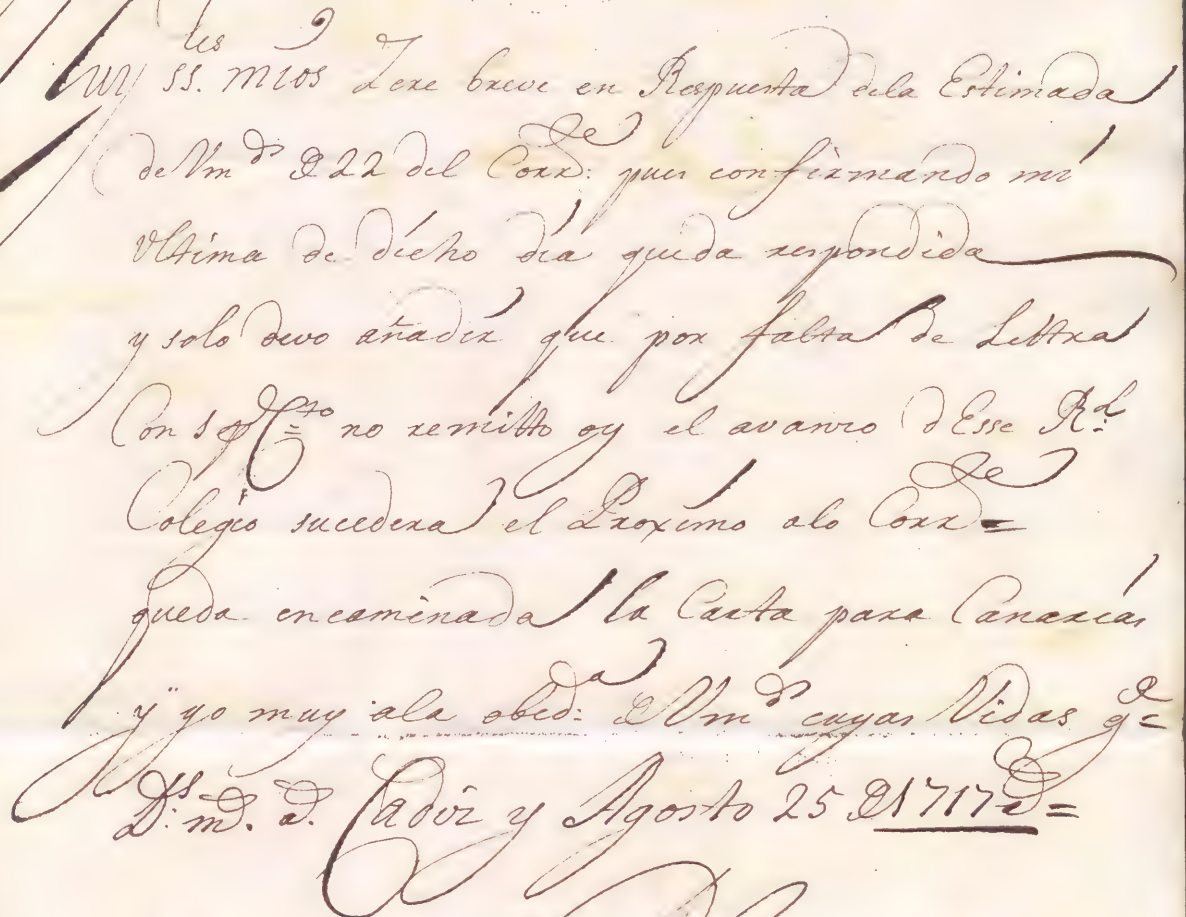 Muy ss.les mios Zere breve en Respuesta dela Estimada
de Vmds de 22 del Corrde: pues confirmando mi
Ultima de dicho dia queda respondida
y solo devo añadir que por falta de Lettra
Con 1 p Cto no remitto oy el avanzo dEsse Rl
Colegio sucedera el Proximo alo Corrde =
queda encaminada la Carta para Canarias
y yo muy ala obeda: de Vmds cuyas Vidas ge =
Dss: md. ad. Cadiz y Agosto 25 de 1717 ad =